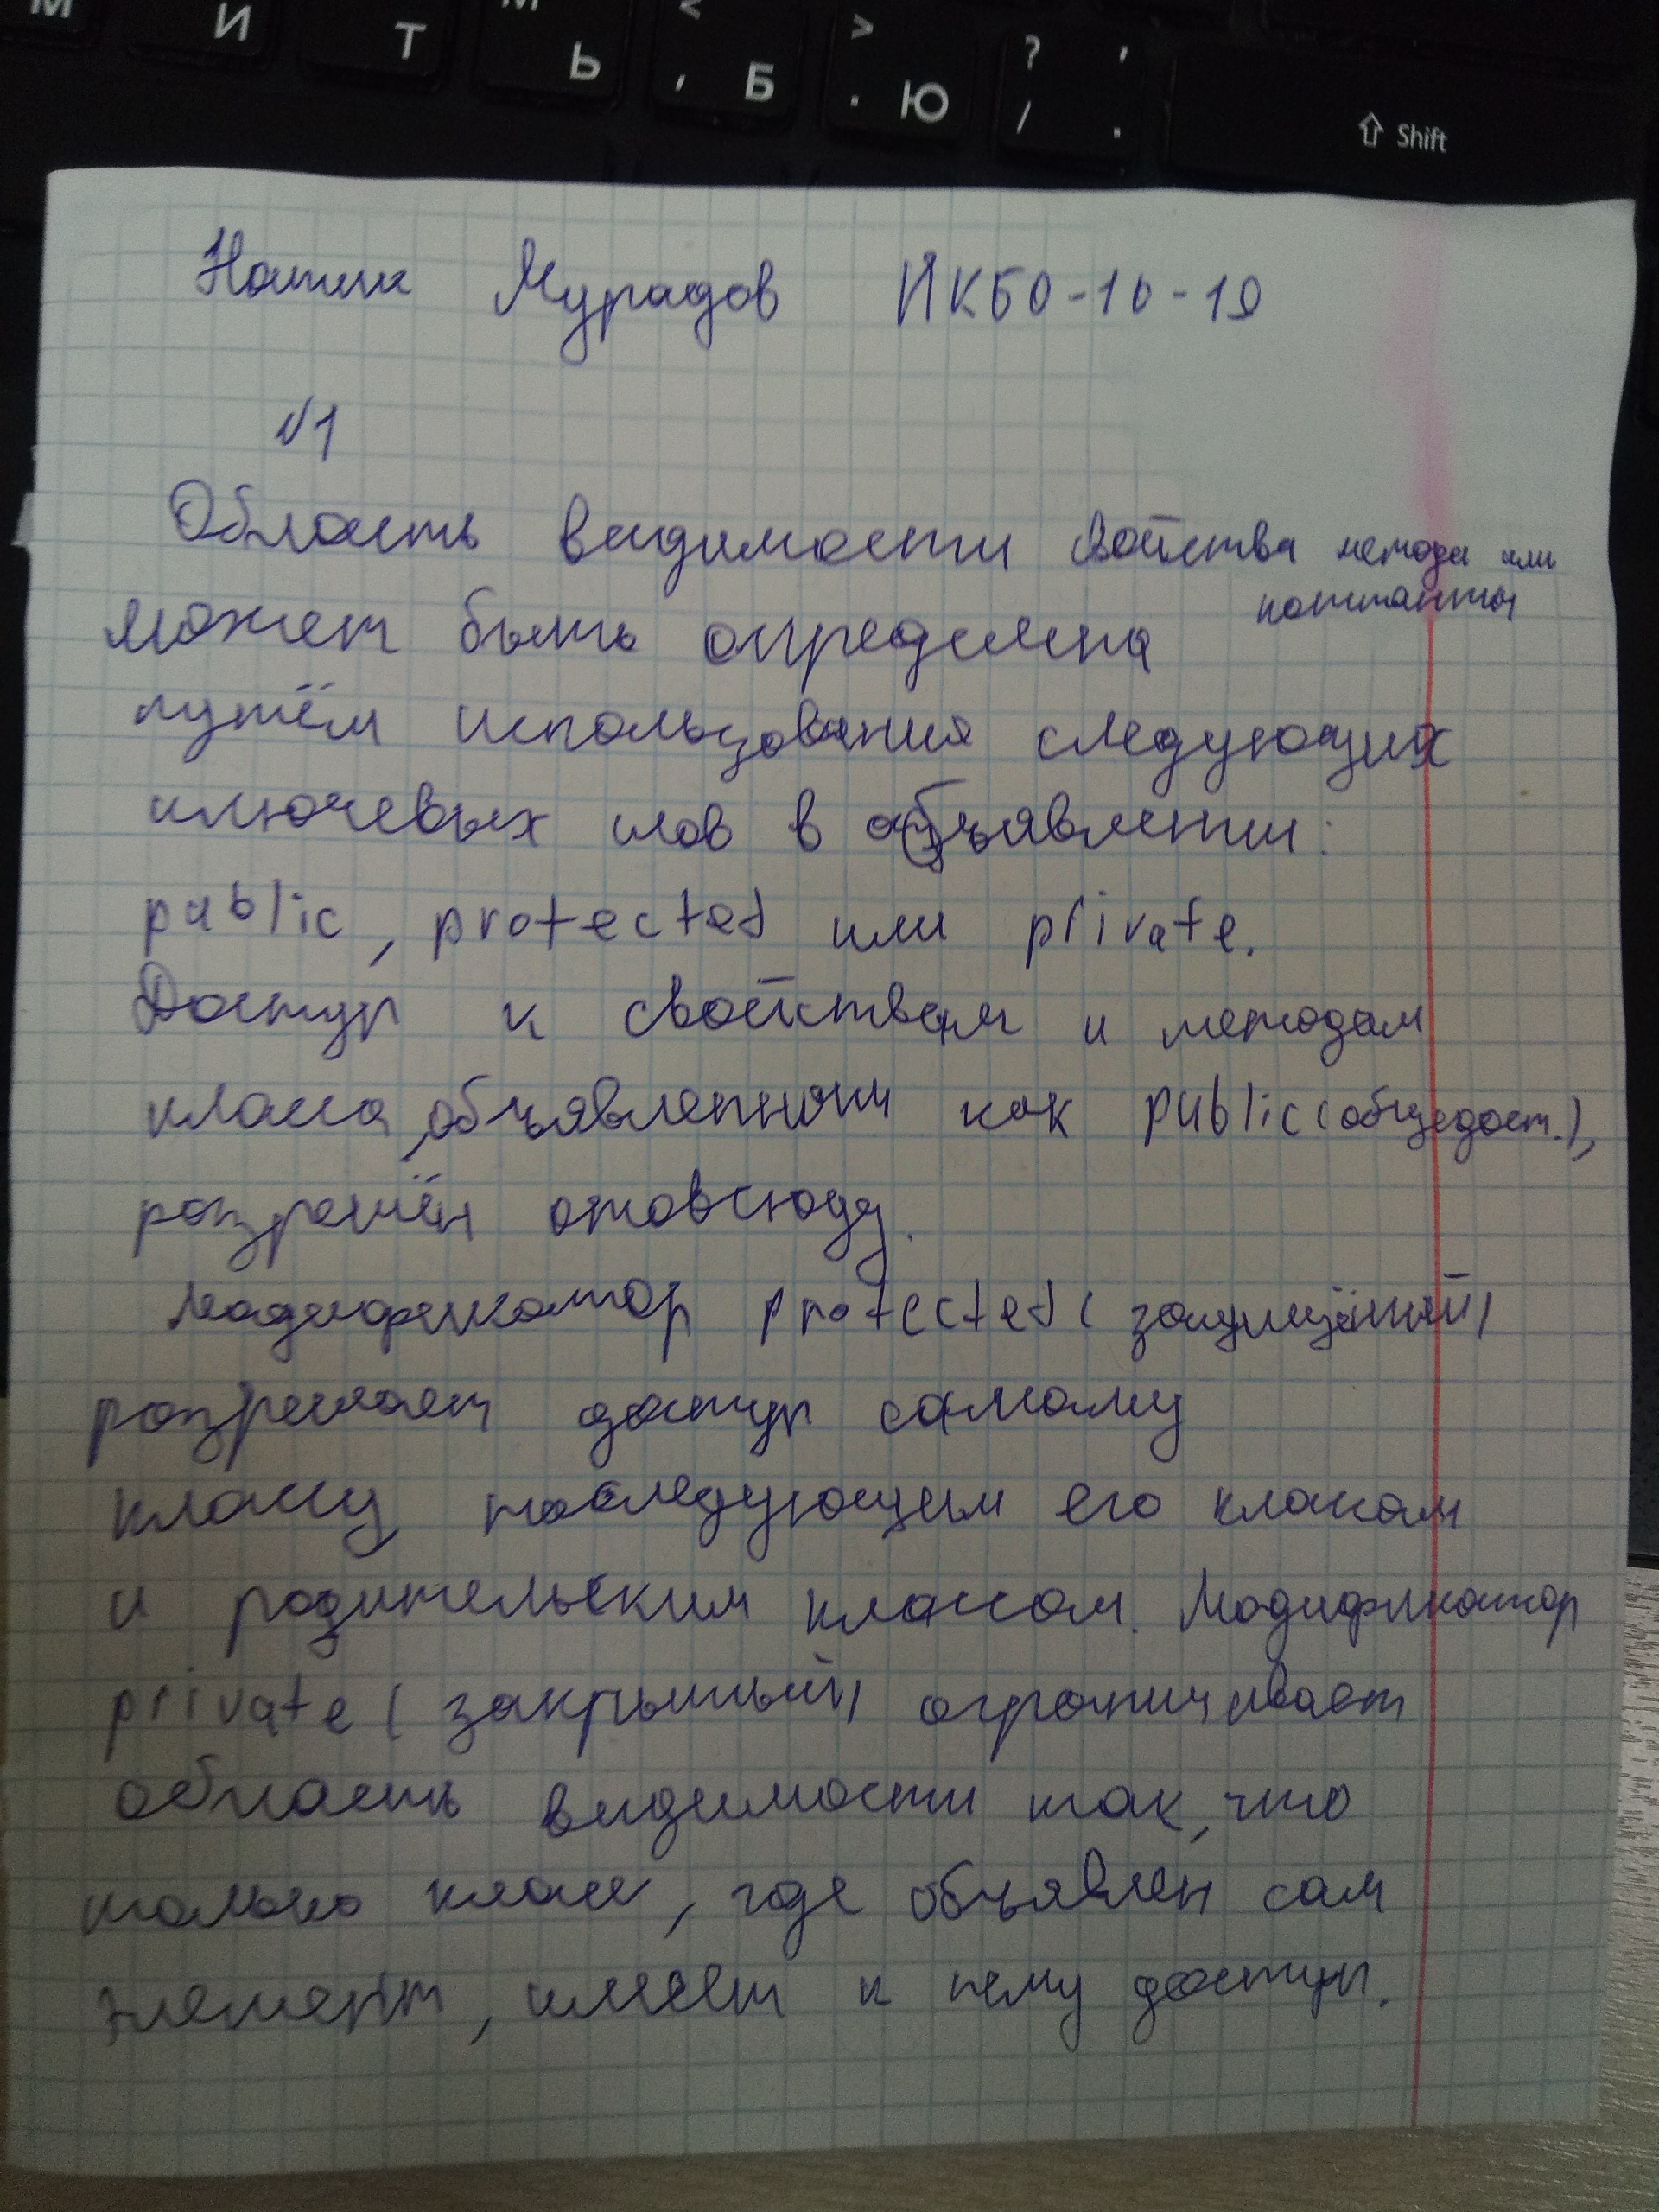 М И Т М Ь < , Б > . Ю ? / , . ⇧ Shift
Натик Мурадов ИКБО-10-19
№1
Область видимости свойства метода или
константы
может быть определена
путём использования следующих
ключевых слов в объявлении:
public, protected или private.
Доступ к свойствам и методам
класса, объявленным как public (общедост.),
разрешён отовсюду.
Модификатор protected (защищённый)
разрешает доступ самому
классу, последующим его класам
и родительским классам. Модификатор
private (закрытый) ограничивает
область видимости так, что
только класс, где объявлен сам
элемент, имеет к нему доступ.